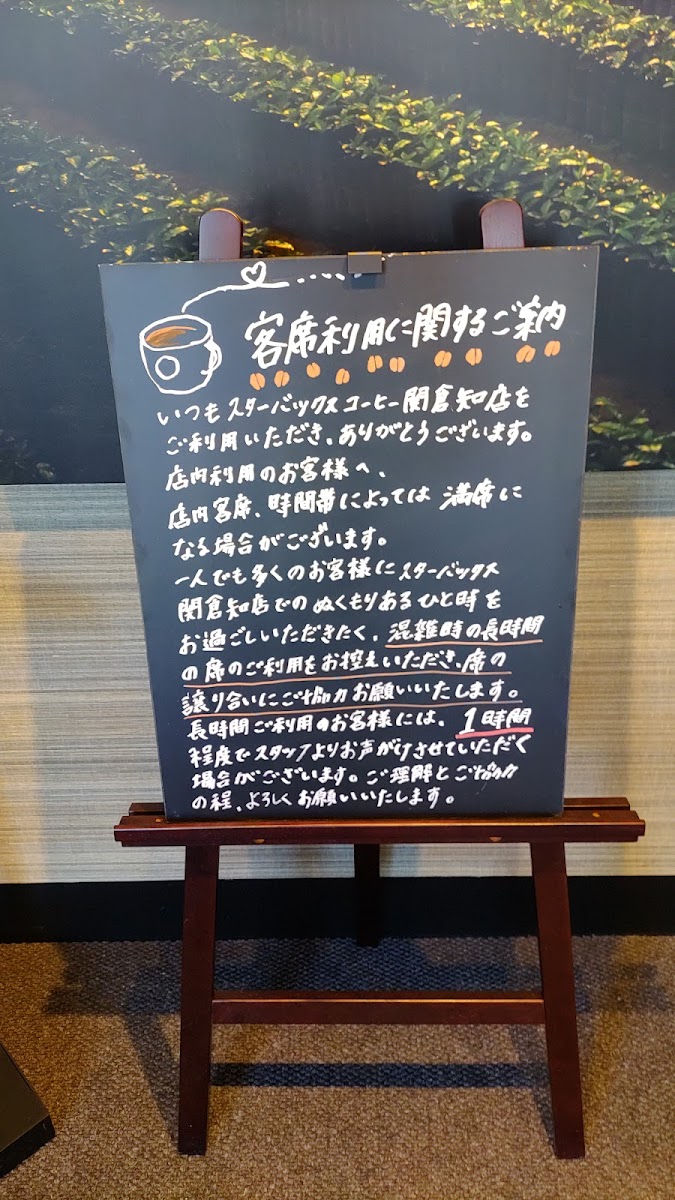 客席利用に関するご案内
いつもスターバックスコーヒー関倉知店を
ご利用いただき、ありがとうございます。
店内利用のお客様へ、
店内客席、時間帯によっては満席に
なる場合がございます。
一人でも多くのお客様にスターバックス
関倉知店でのぬくもりあるひと時を
お過ごしいただきたく、混雑時の長時間
の席のご利用をお控えいただき、席の
譲り合いにご協力お願いいたします。
長時間ご利用のお客様には、1時間
程度でスタッフよりお声がけさせていただく
場合がございます。ご理解とご協力
の程、よろしくお願いいたします。